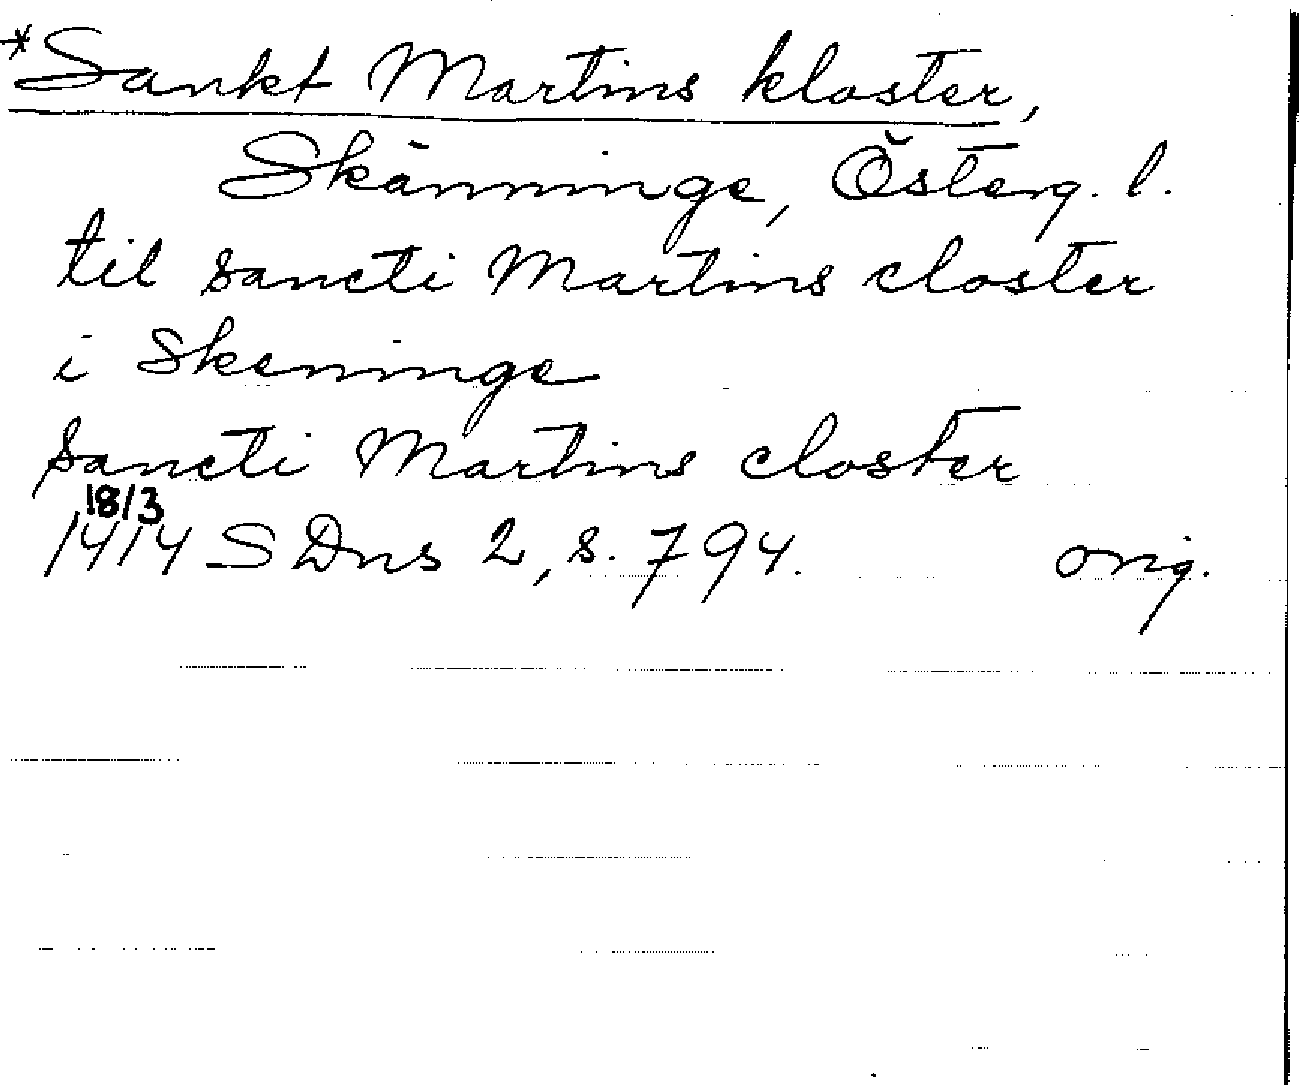 *Sankt Martins kloster,
Skänninge, Österg. l.
til sancti Martins closter
i Skeninge
sancti Martins closter
18/3
1414 SDns 2, s. 794. orig.